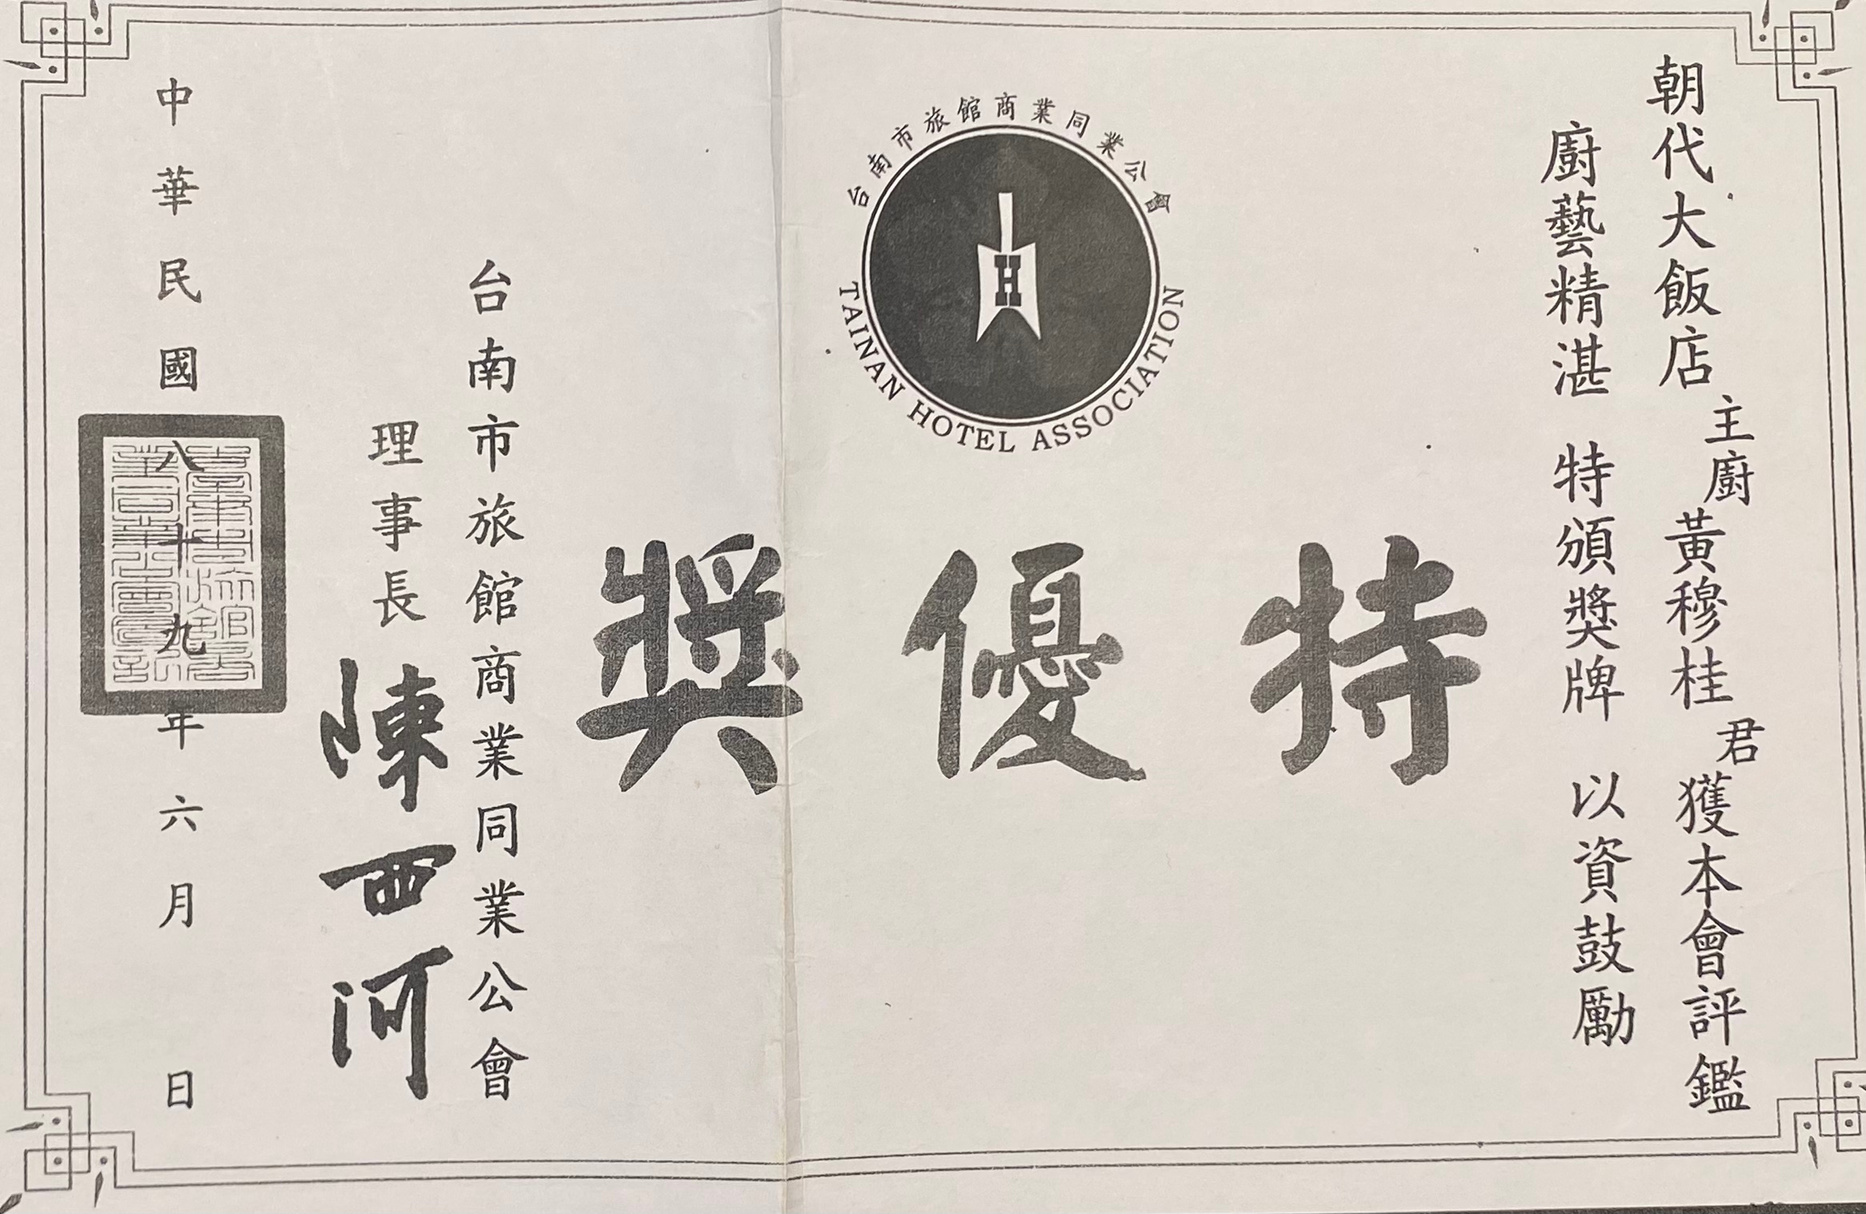 朝代大飯店主廚黃穆桂君獲本會評鑑
廚藝精湛 特頒獎牌 以資鼓勵
台南市旅館商業同業公會
H
TAINAN HOTEL ASSOCIATION
特優獎
台南市旅館商業同業公會
理事長 陳西河
中華民國八十九年六月 日